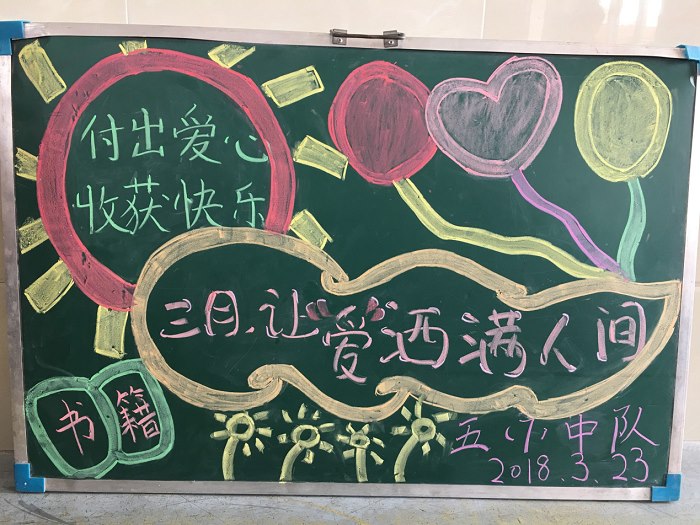 付出爱心
收获快乐
三月.让"爱"洒满人间
书籍
五小中队
2018.3.23